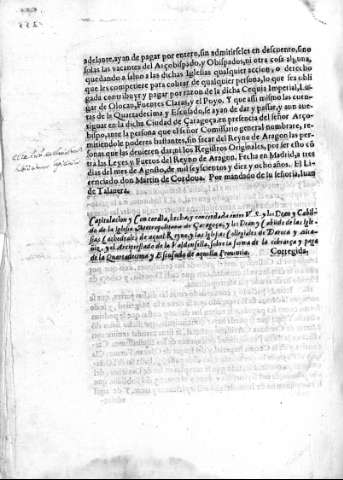 adelante, ayan de pagar por entero, sin admitirseles en descuento, sino
solas las vacantes del Arçobispado, y Obispados, ni otra cosa alguna,
quedando a saluo a las dichas Iglesias qualquier accion, o derecho
que les competiere para cobrar de qualquier persona, lo que sea obli
gada contribuyr, y pagar por razon de la dicha Cequia Imperial, Lu
gar de Olocau, Fuentes Claras, y el Poyo. Y que assi mismo las cuen
tas de la Quartadecima y Escusado, se ayan de dar y passar, y aun aue-
riguar en la dicha Ciudad de Çaragoça, en presencia del señor Arço-
bispo, ante la persona que el señor Comissario general nombrare, re-
mitiendole poderes bastantes, sin sacar del Reyno de Aragon las per-
sonas que las deuieren dar, ni los Registros Originales, por ser esto cō
tra las Leyes y Fueros del Reyno de Aragon. Fecha en Madrid, a tres
dias del mes de Agosto, de mil seyscientos y diez y ocho años. El Li-
cenciado don Martin de Cordoua. Por mandado de su señoria, Iuan
de Talauera.
Capitulacion y Concordia, hecha, y concordada entre V. S. y los Dean y Cabil-
do de la Iglesia Metropolitana de Çaragoça, y los Dean y Cabildo de las Igle-
sias Cathedrales de aquel Reyno, y las Iglesias Colegiales de Daroca y Alca-
ñiz, y el Arciprestado de la Valdonsella, sobre la forma de la cobrança y paga
de la Quartadecima y Escusado de aquella Prouincia. Corregida,